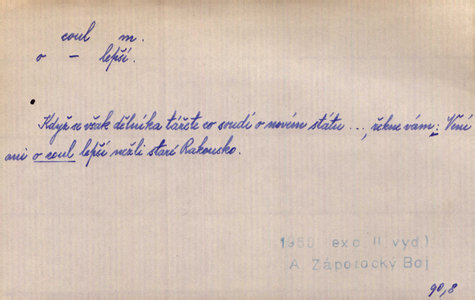 coul m.
o – lepší.
Když se však dělníka tážete co soudí o novém státu ..., řekne vám: Není
ani o coul lepší nežli staré Rakousko.
1950 exc. II vyd)
A Zápotocký Boj
90,8